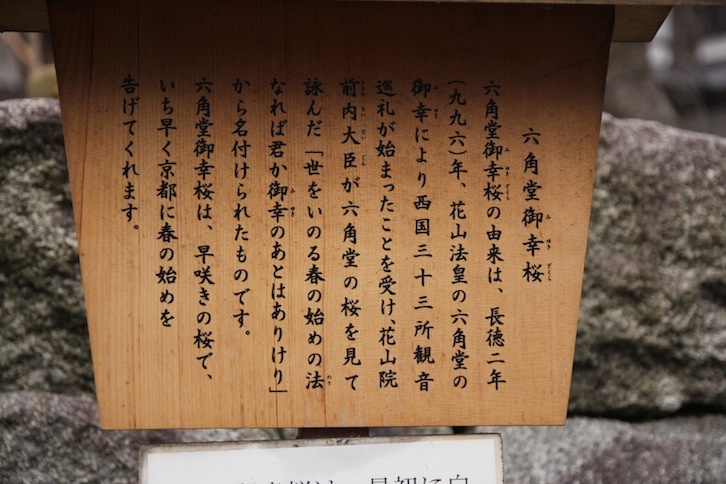 六角堂御幸桜
六角堂御幸桜の由来は、長徳二年
(九九六)年、花山法皇の六角堂の
御幸により西国三十三所観音
巡礼が始まったことを受け、花山院
前内大臣が六角堂の桜を見て
詠んだ「世をいのる春の始めの法
なれば君か御幸のあとはありけり」
から名付けられたものです。
六角堂御幸桜は、早咲きの桜で、
いち早く京都に春の始めを
告げてくれます。
桜は、最初に白